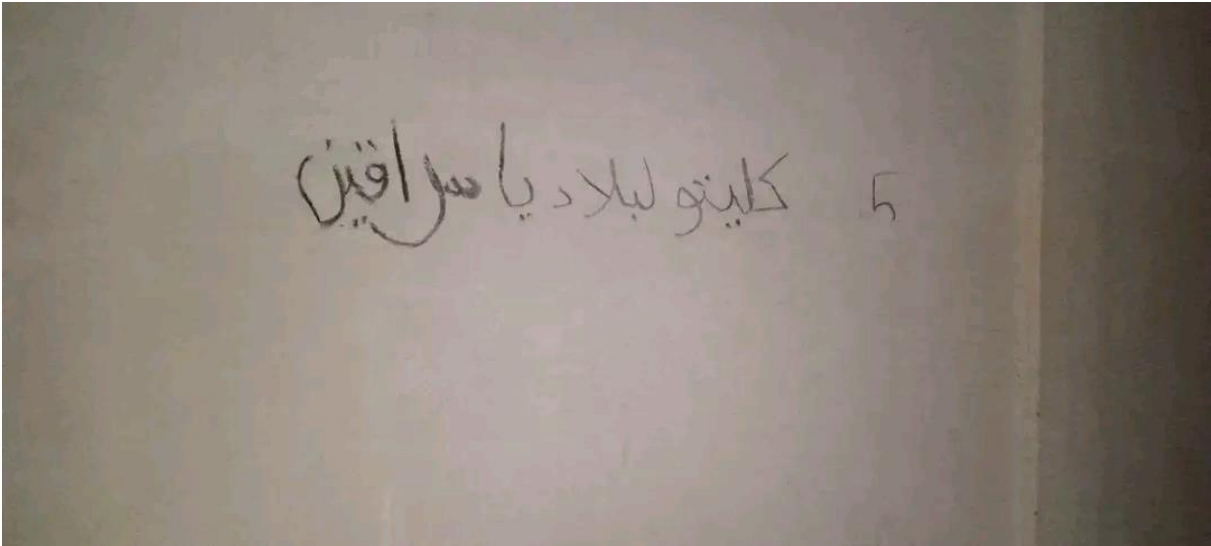 5 كليتو لبلاد يا سراقين